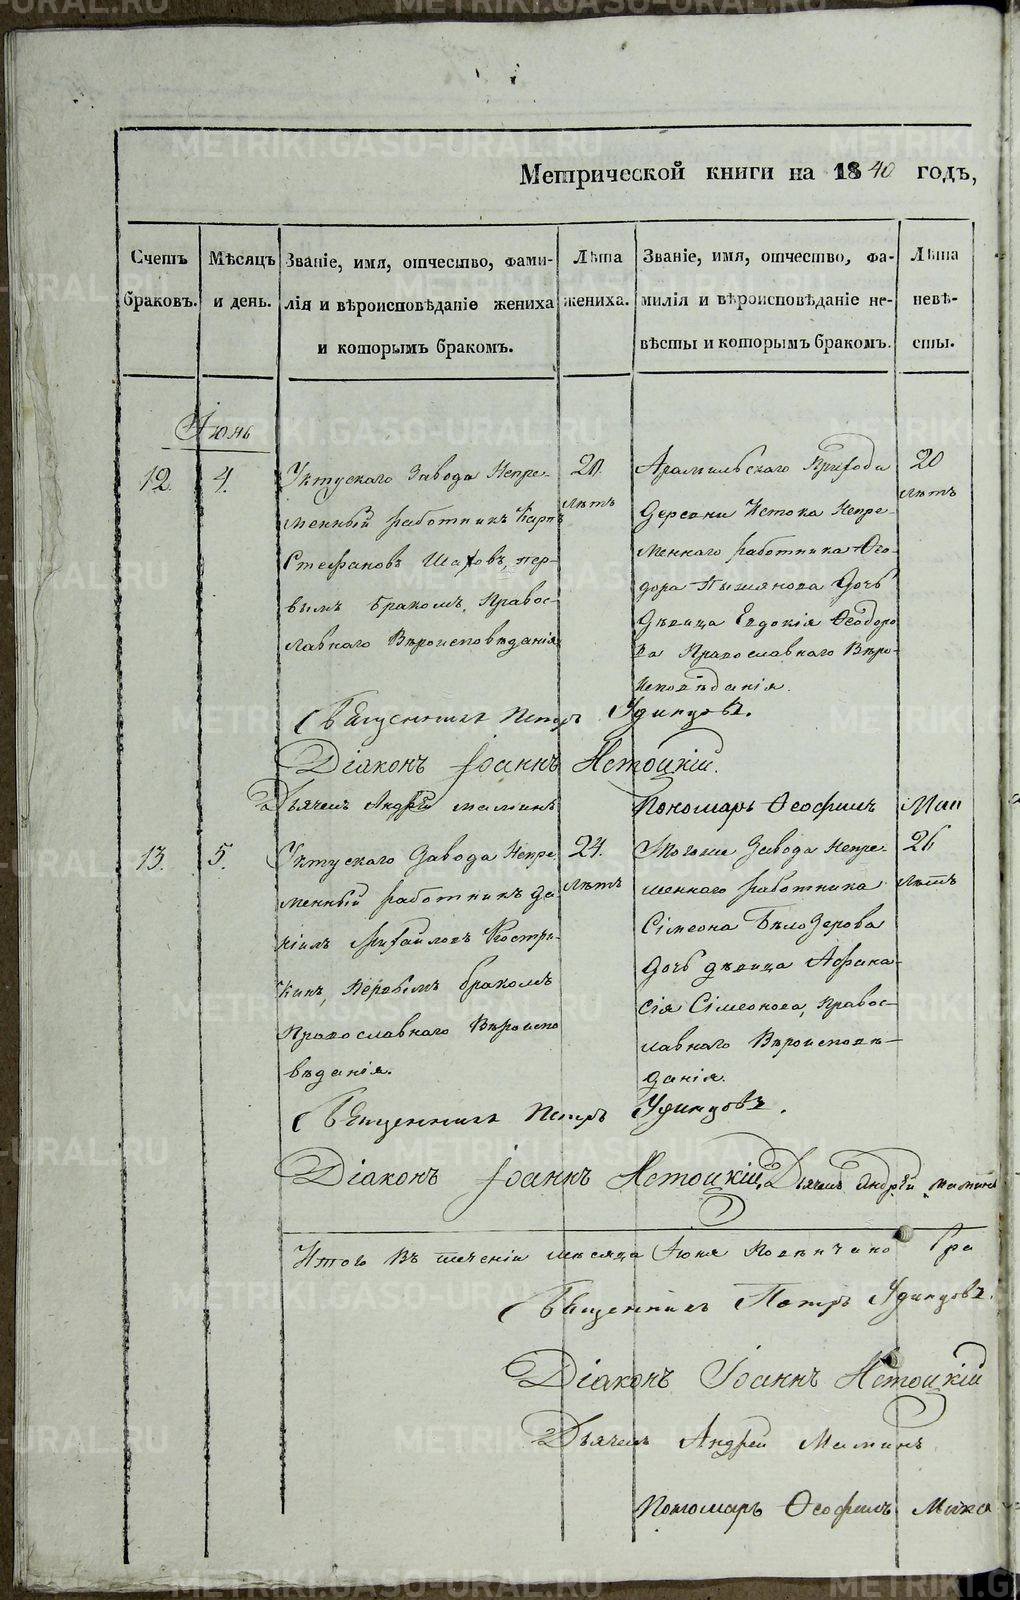 Метрической книги на 1840 годъ,
Счетъ браковъ.
Мѣсяцъ и день.
Званіе, имя, отчество, фами-
лія и вѣроисповѣданіе жениха
и которымъ бракомъ.
Лѣта жениха.
Званіе, имя, отчество, фа-
милія и вѣроисповѣданіе не-
вѣсты и которымъ бракомъ.
Лѣта невѣ-
сты.
Іюнь
12.
4.
Уктускаго Завода Непре-
менный работникъ Карпъ
Стефановъ Шаховъ, пер-
вымъ бракомъ, Правос-
лавнаго Вѣроисповѣданія
20
лѣтъ
Арамильскаго Прихода
Деревни Истока Непре-
меннаго работника Ѳео-
дора дочь
Дѣвица Евдокія Ѳеодоро
ва Православнаго Вѣро-
исповѣданія.
20
лѣтъ
Священникъ Петръ Удинцовъ.
Діаконъ Іоаннъ Истоцкій.
Дьячекъ Андрей Маминъ
Пономарь Ѳеофилъ
13.
5.
Уктускаго Завода Непре
менный работникъ Да
ніилъ Михайловъ Костри-
кинъ, Первымъ бракомъ
Православнаго Вѣроиспо
вѣданія.
24.
лѣтъ
Тогоже Завода Непре-
меннаго работника
Сімеона Бѣлозерова
дочь дѣвица Афана-
сія Сімеонова, Правос-
лавнаго Вѣроисповѣ-
данія.
26
лѣтъ
Священникъ Петръ Удинцовъ.
Діаконъ Іоаннъ Истоцкій, Дьячекъ Андрей Маминъ
Итого въ теченіи месяца Іюня Повѣнчано
Священникъ Петръ Удинцовъ.
Діаконъ Іоаннъ Истоцкій
Дьячекъ Андрей Маминъ
Пономарь Ѳеофилъ
METRIKI.GASO-URAL.RU